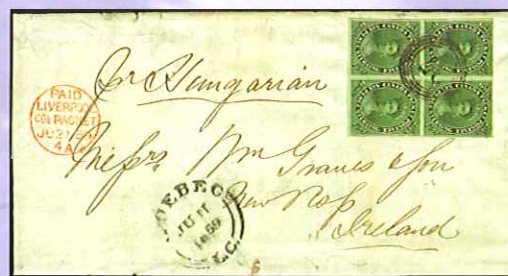 Pr Hungarian
PAID
LIVERPOOL
COL. PACKET
JU 21 59
4A
Messrs Wm Graves & Son
New Ross
Ireland
QUEBEC
JU 11
1859
L.C.